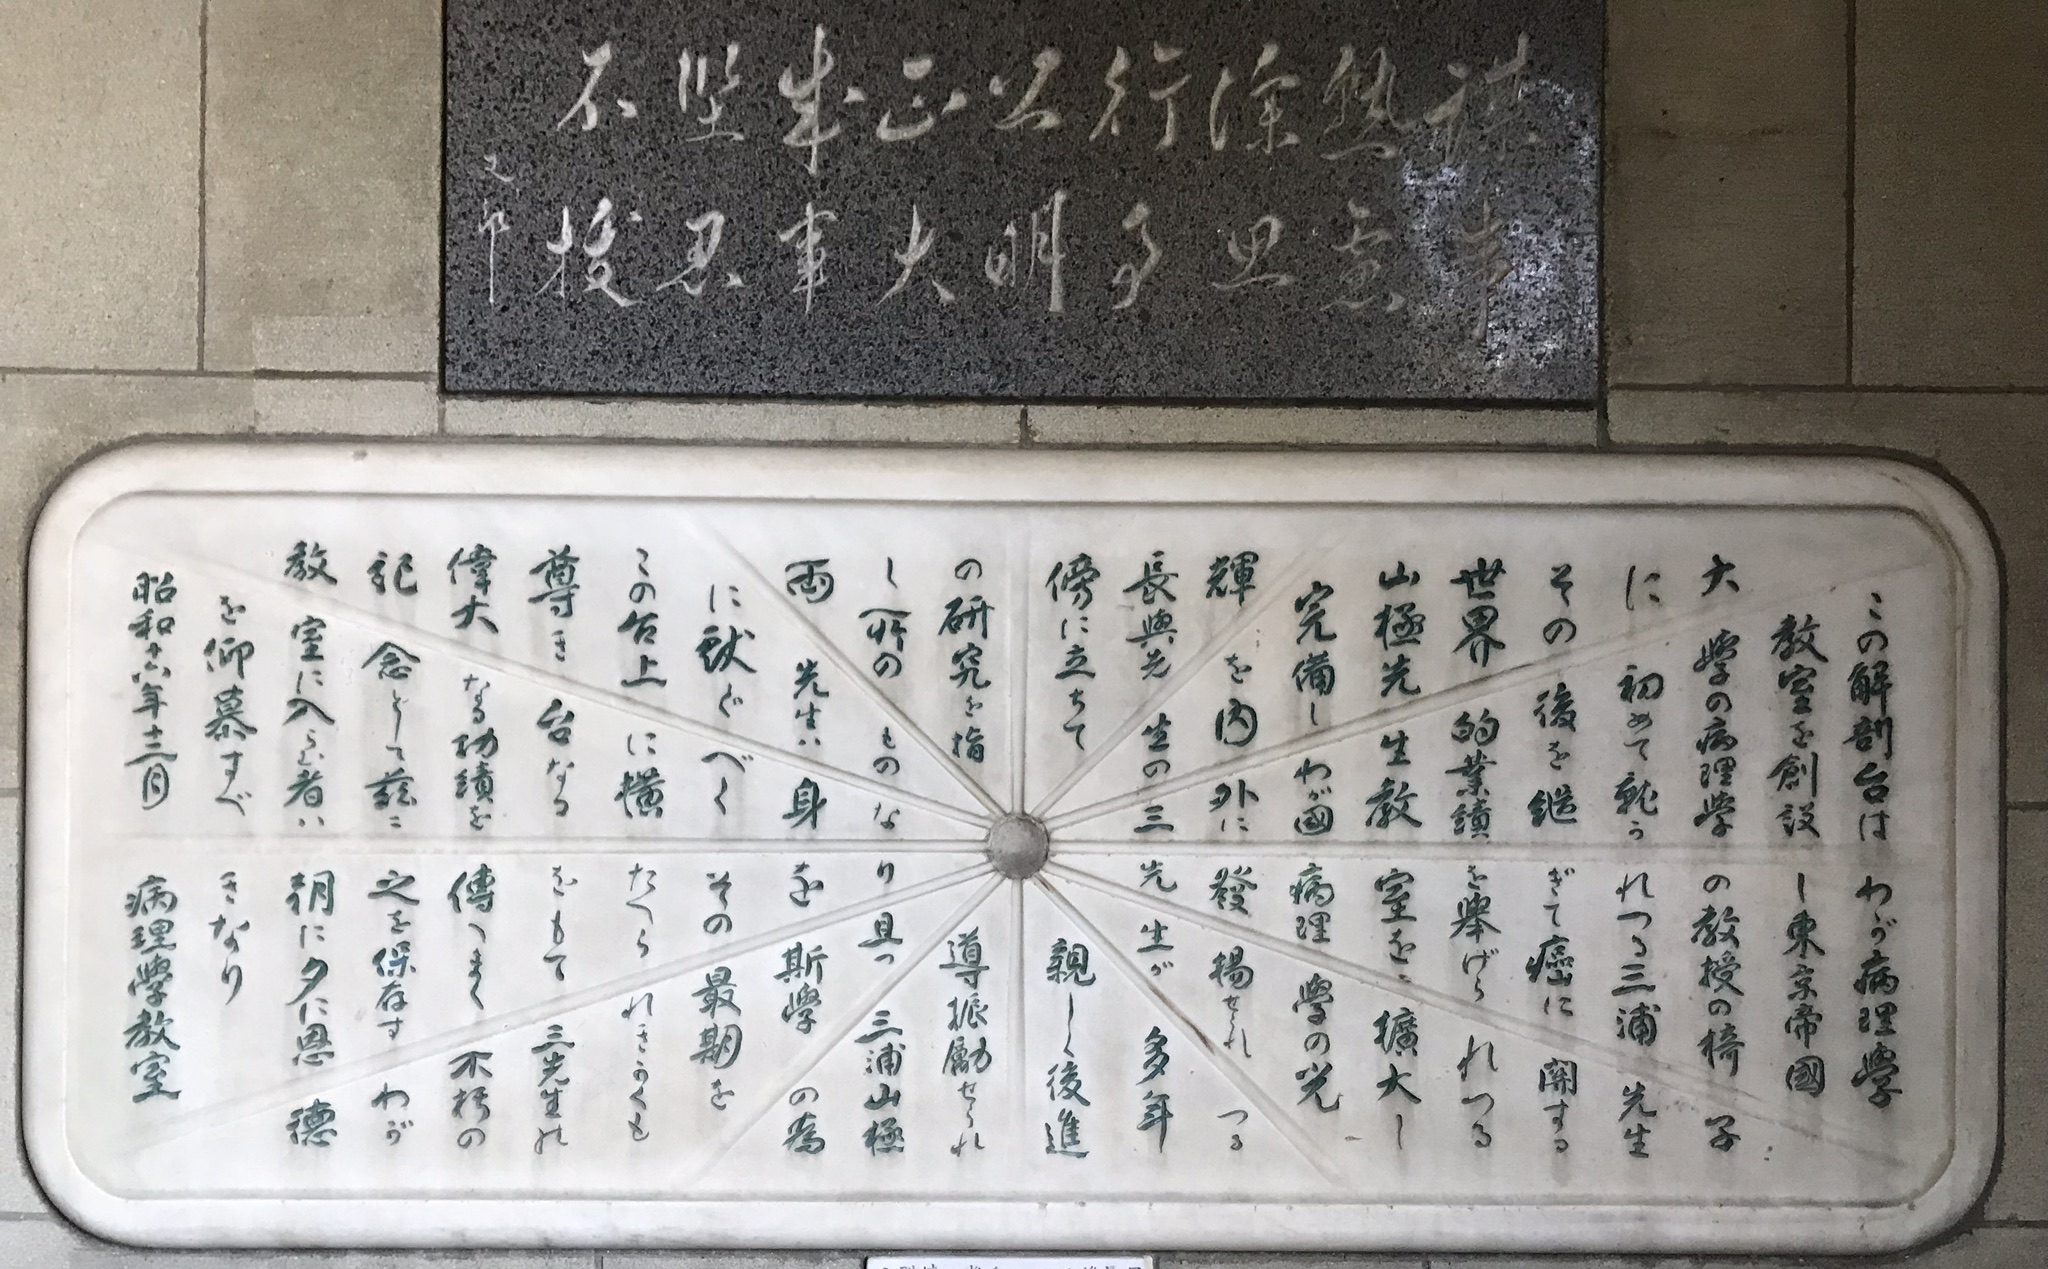 謀事
熟慮
深思
行事
公明
正大
成事
堅忍
不拔
又郎
この解剖台は わが病理學
教室を創設し東京帝國
大學の病理學の教授の椅子
に初めて就かれつる三浦先生
その後を継ぎて癌に関する
世界的業績を舉げられつる
山極先生教室を擴大し
完備しわが國病理學の光
輝を内外に發揚せられつる
長與先生の三先生が多年
傍に立ちて親しく後進
の研究を指導振勵せられ
し所のものなり且つ三浦山極
両先生は身を斯學の為
に献ぐべくその最期を
この台上に横たへられきかくも
尊き台なるをもて三先生の
偉大なる功績を傳へまく不朽の
記念として茲に之を保存すわが
教室に入らむ者は朝に夕に恩德
を仰慕すべきなり
昭和十六年十二月 病理學教室